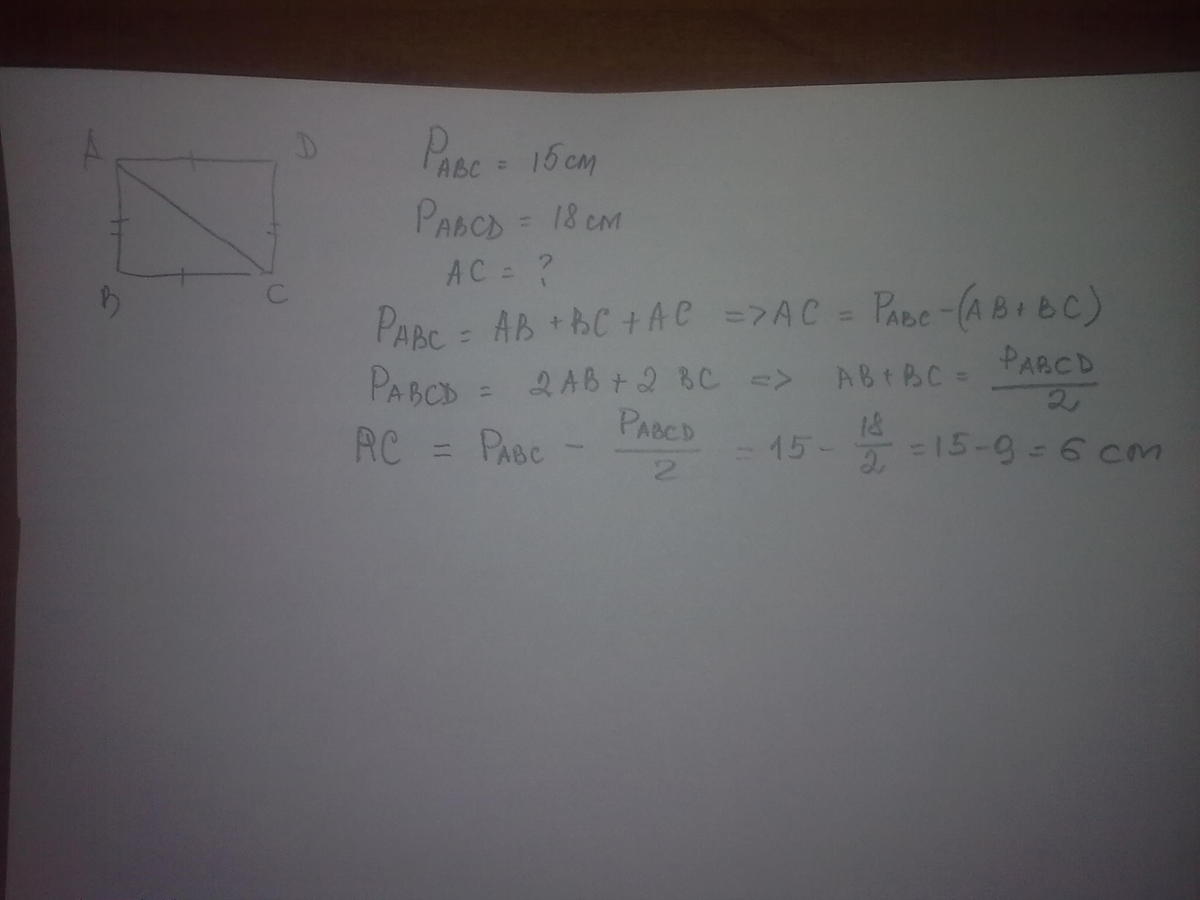 A D
B C
P_ABC = 15 cm
P_ABCD = 18 cm
AC = ?
P_ABC = AB + BC + AC => AC = P_ABC - (AB + BC)
P_ABCD = 2 AB + 2 BC => AB + BC = P_ABCD / 2
AC = P_ABC - P_ABCD / 2 = 15 - 18 / 2 = 15 - 9 = 6 cm